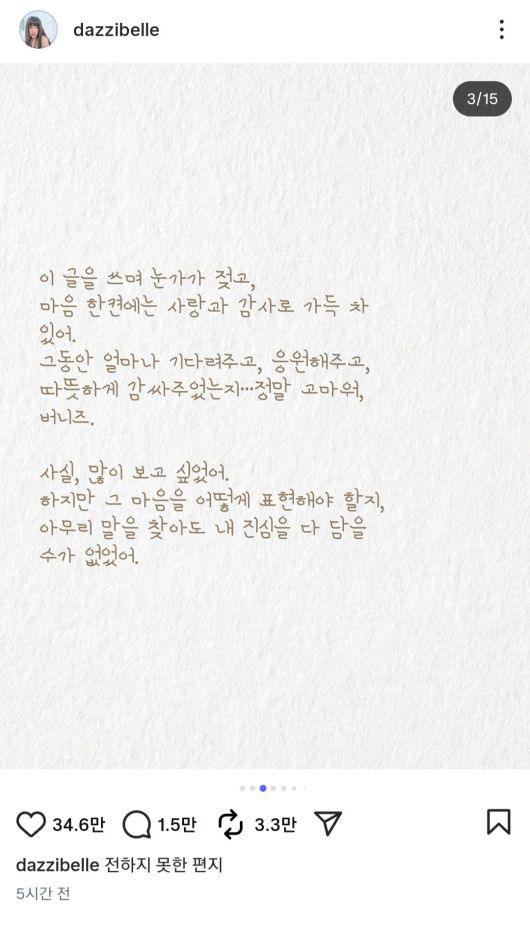 dazzibelle
3/15
이 글을 쓰며 눈가가 젖고,
마음 한켠에는 사랑과 감사로 가득 차
있어.
그동안 얼마나 기다려주고, 응원해주고,
따뜻하게 감싸주었는지...정말 고마워,
버니즈.
사실, 많이 보고 싶었어.
하지만 그 마음을 어떻게 표현해야 할지,
아무리 말을 찾아도 내 진심을 다 담을
수가 없었어.
34.6만 1.5만 3.3만
dazzibelle 전하지 못한 편지
5시간 전